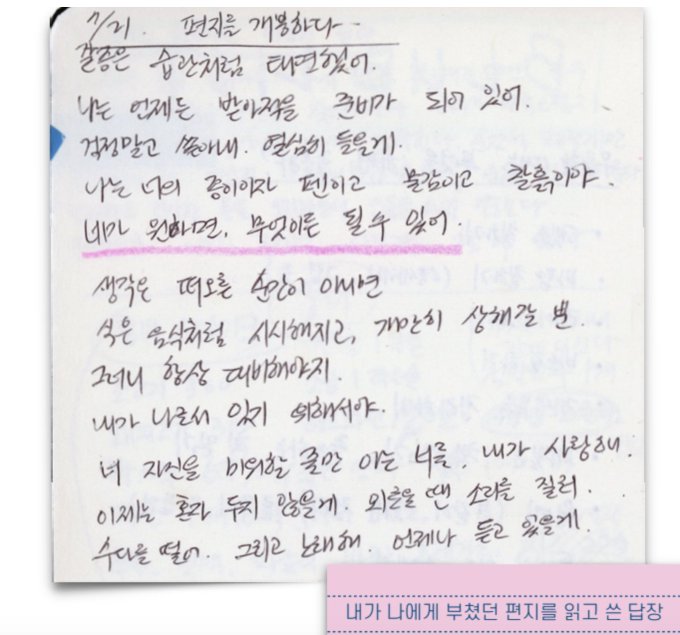 7/21. 편지를 개봉하다
갈증은 습관처럼 태연했어.
나는 언제든 받아적을 준비가 되어 있어.
걱정말고 쏟아내. 열심히 들을게.
나는 너의 종이이자 펜이고 물감이고 찰흙이야.
네가 원하면, 무엇이든 될 수 있어.
생각은 떠오른 순간이 아니면
식은 음식처럼 시시해지고, 가만히 상해갈 뿐.
그러니 항상 대비해야지
내가 나로서 있기 위해서야.
너 자신을 미워할 줄만 아는 너를, 내가 사랑해.
이제는 혼자 두지 않을게. 외로울 땐 소리를 질러.
수다를 떨어. 그리고 노래해 언제나 듣고 있을게.
내가 나에게 부쳤던 편지를 읽고 쓴 답장